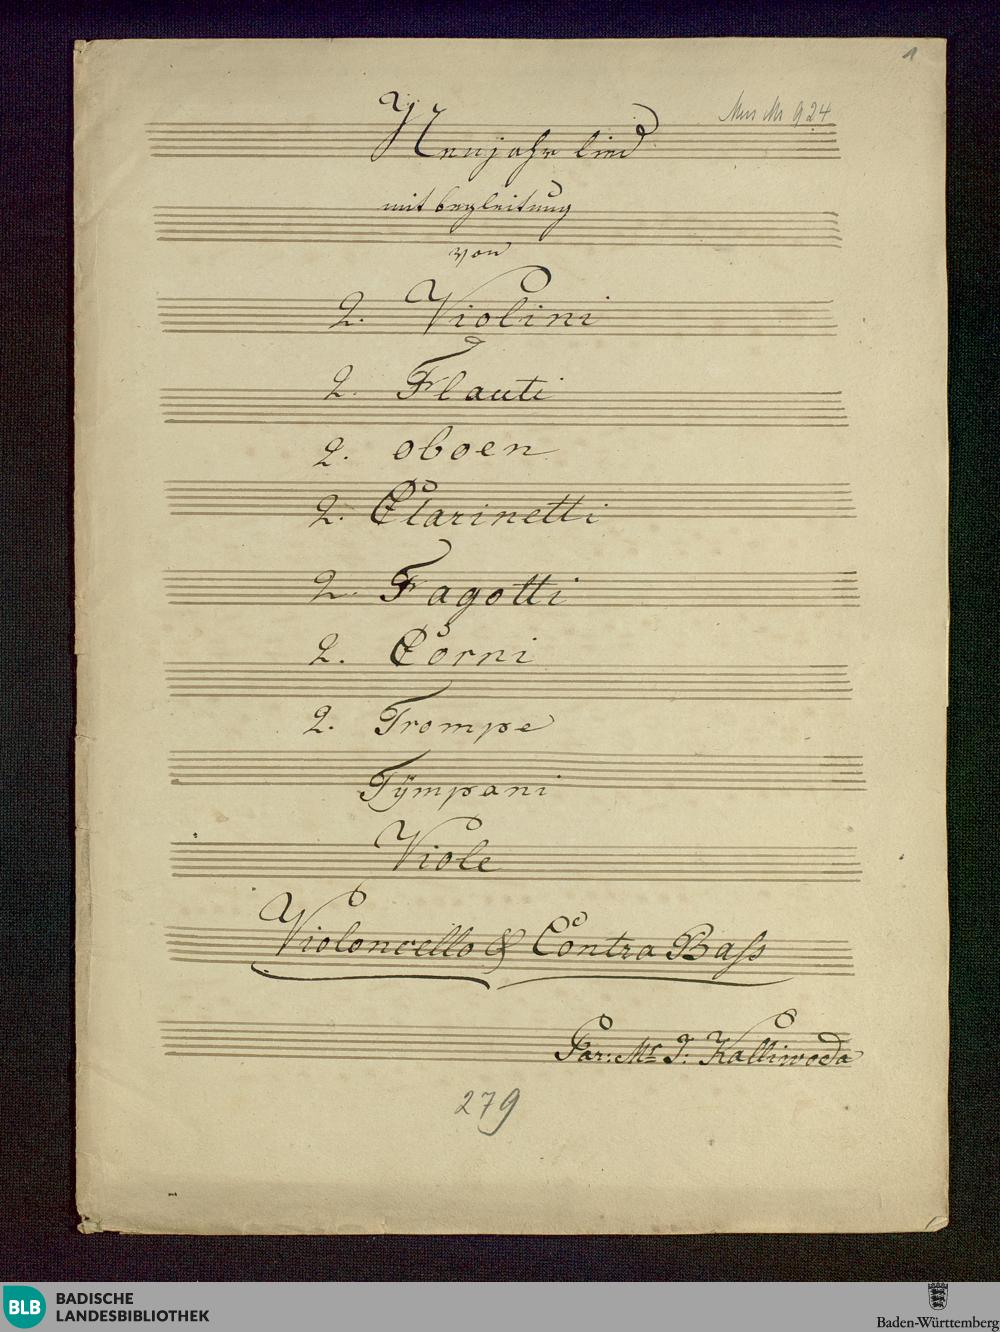 1
Mus Ms 924
Neujahr lied
mit begleitung
von
2. Violini
2. Flauti
2. oboen
2. Clarinetti
2. Fagotti
2. Corni
2. Trompe
Tÿmpani
Viole
Violoncello & Contra Baſs
Par: Mr. J: Kalliwoda
279
BLB BADISCHE
LANDESBIBLIOTHEK
Baden-Württemberg